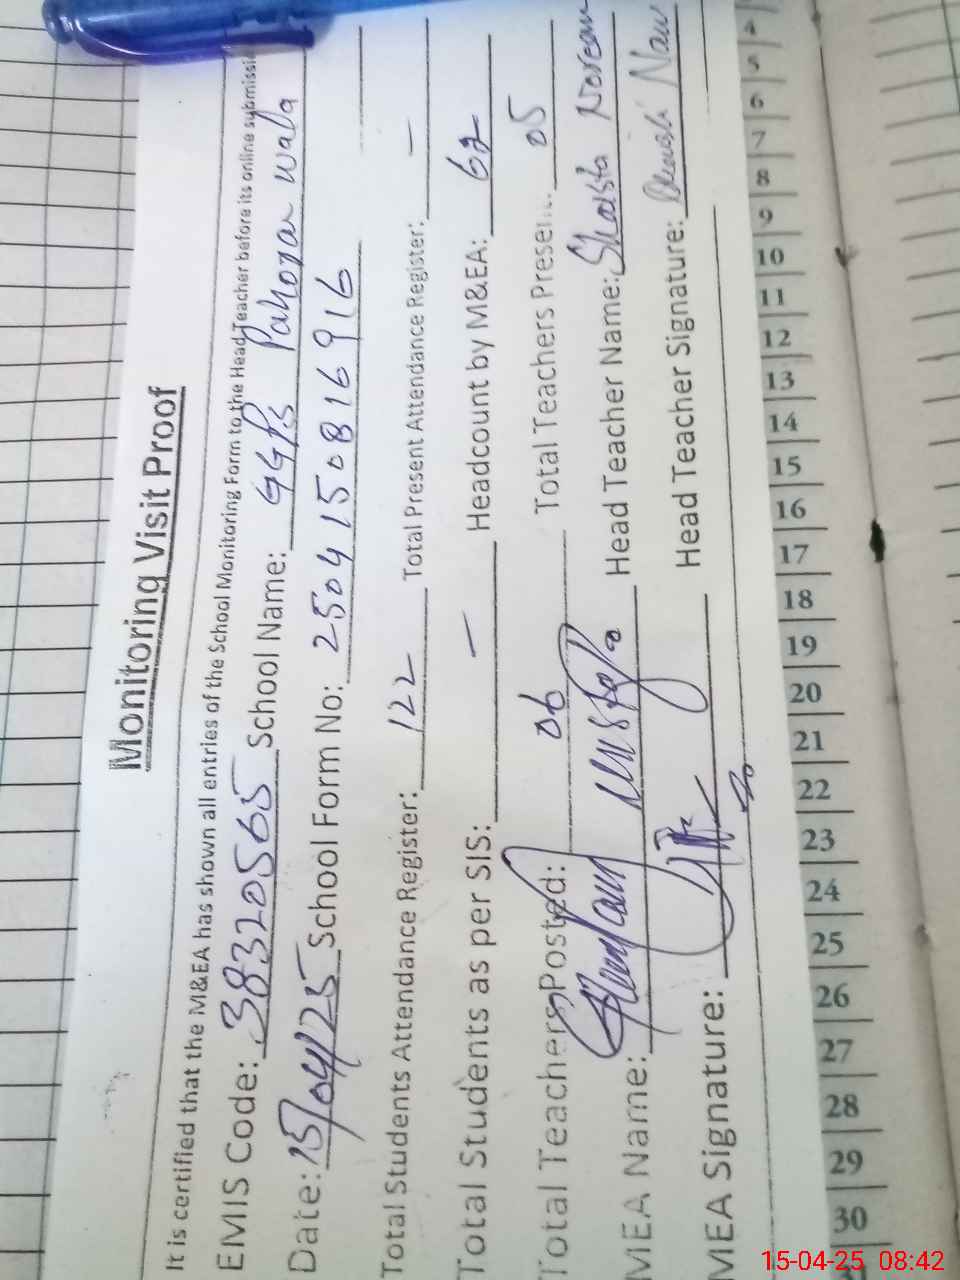 Monitoring Visit Proof
It is certified that the M&EA has shown all entries of the School Monitoring Form to the Head Teacher before its online submissi
EMIS Code: 38320565 School Name: GGPS Pahoran wala
Date: 15/04/25 School Form No: 250415081 6916
Total Students Attendance Register: 122 Total Present Attendance Register: –
Total Students as per SIS: – Headcount by M&EA: 62
Total Teachers Posted: 06 Total Teachers Present: 05
MEA Name: Mustafa Head Teacher Name: Shaista Noreen
MEA Signature: Head Teacher Signature:
4
5
6
7
8
9
10
11
12
13
14
15
16
17
18
19
20
21
22
23
24
25
26
27
28
29
30
15-04-25 08:42